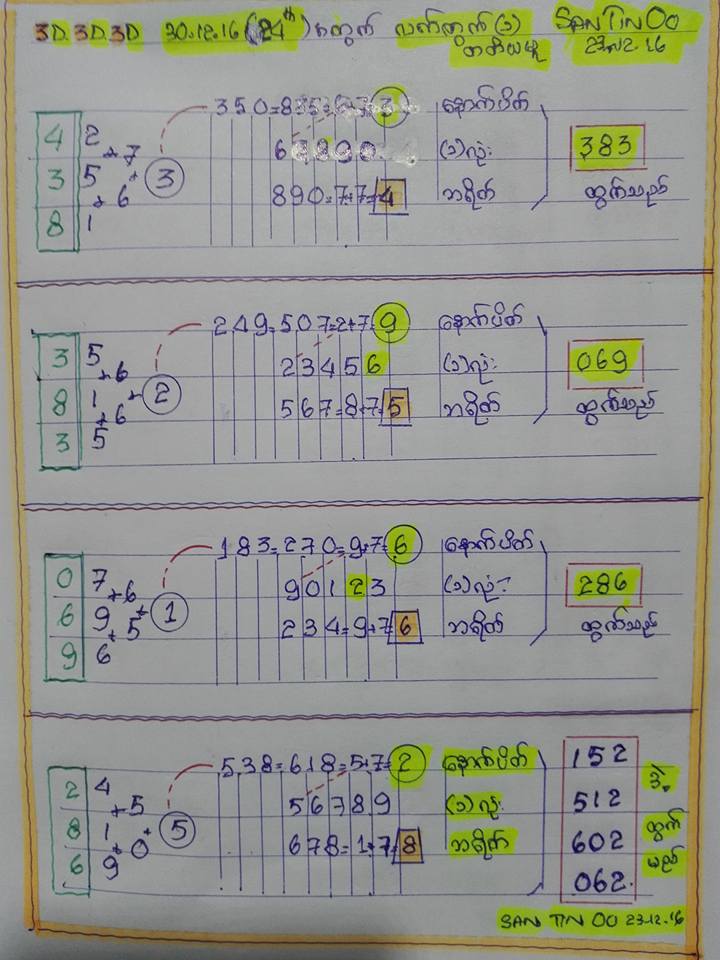 3D.3D.3D 30.12.16 (24th) အတွက် လက်တွက် (၁) SAN TIN OO
တတိယမူ 23.12.16
350=835=6+7=3 နောက်ပိတ်
4 2 +7 67890 (၁)လုံး 383
3 5 +6 + 3 890=7+7=4 ဘရိတ် ထွက်သည်
8 1
249=507=2+7=9 နောက်ပိတ်
3 5 +6 23456 (၁)လုံး 069
8 1 +6 + 2 567=8+7=5 ဘရိတ် ထွက်သည်
3 5
183=270=9+7=6 နောက်ပိတ်
0 7 +6 90123 (၁)လုံး 286
6 9 +5 + 1 234=9+7=6 ဘရိတ် ထွက်သည်
9 6
538=618=5+7=2 နောက်ပိတ် 152
2 4 +5 56789 (၁)လုံး 512 ဒဲ့
8 1 +0 + 5 678=1+7=8 ဘရိတ် 602 ထွက်
6 9 062. မည်
SAN TIN OO 23.12.16